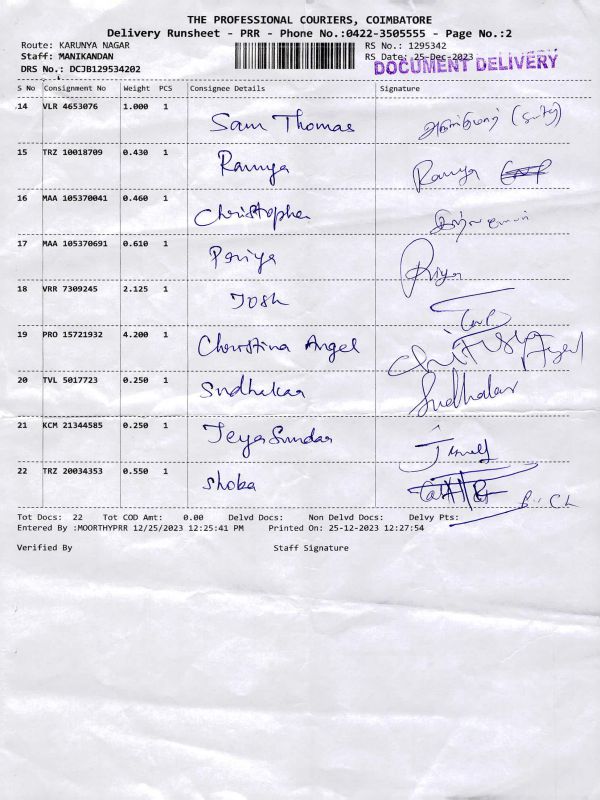 THE PROFESSIONAL COURIERS, COIMBATORE
Delivery Runsheet - PRR - Phone No.:0422-3505555 - Page No.:2
Route: KARUNYA NAGAR RS No.: 1295342
Staff: MANIKANDAN RS Date: 25-Dec-2023
DOCUMENT DELIVERY
DRS No.: DCJB129534202
S No Consignment No Weight PCS Consignee Details Signature
14 VLR 4653076 1.000 1
Sam Thomas
15 TRZ 10018709 0.430 1
Ramya Ramya
16 MAA 105370041 0.460 1
Christopher
17 MAA 105370691 0.610 1
Pariya Priya
18 VRR 7309245 2.125 1
Josh
19 PRO 15721932 4.200 1
Christina Angel Christina Angel
20 TVL 5017723 0.250 1
Sudhakar Sudhakar
21 KCM 21344585 0.250 1
JeyaSundar
22 TRZ 20034353 0.550 1
Shoba
Tot Docs: 22 Tot COD Amt: 0.00 Delvd Docs: Non Delvd Docs: Delvy Pts:
Entered By :MOORTHYPRR 12/25/2023 12:25:41 PM Printed On: 25-12-2023 12:27:54
Verified By Staff Signature